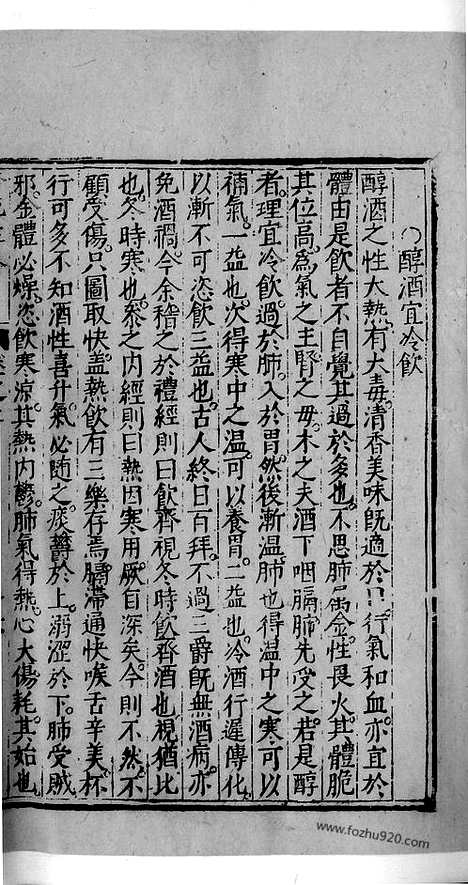 ○醇酒宜冷飲
醇酒之性大熱有大毒清香美味旣適於口行氣和血亦宜於
體由是飲者不自覺其過於多也不思肺屬金性畏火其體脆
其位高爲氣之主腎之母木之夫酒下咽膈肺先受之若是醇
者理宜冷飲過於肺入於胃然後漸溫肺也得溫中之寒可以
補氣一益也次得寒中之溫可以養胃二益也冷酒行遲傳化
以漸不可恣飲三益也古人終日百拜不過三爵旣無酒病亦
免酒禍今余稽之於禮經則曰飲齊視冬時飲齊酒也視猶比
也冬時寒也叅之內經則曰熱因寒用厥旨深矣今則不然不
顧受傷只圖取快盖熱飲有三樂存焉膈滯通快喉舌辛美杯
行可多不知酒性喜升氣必隨之痰欝於上溺澀於下肺受賊
邪金體必燥恣飲寒涼其熱內鬱肺氣得熱心大傷耗其始也
www.fozhu920.com